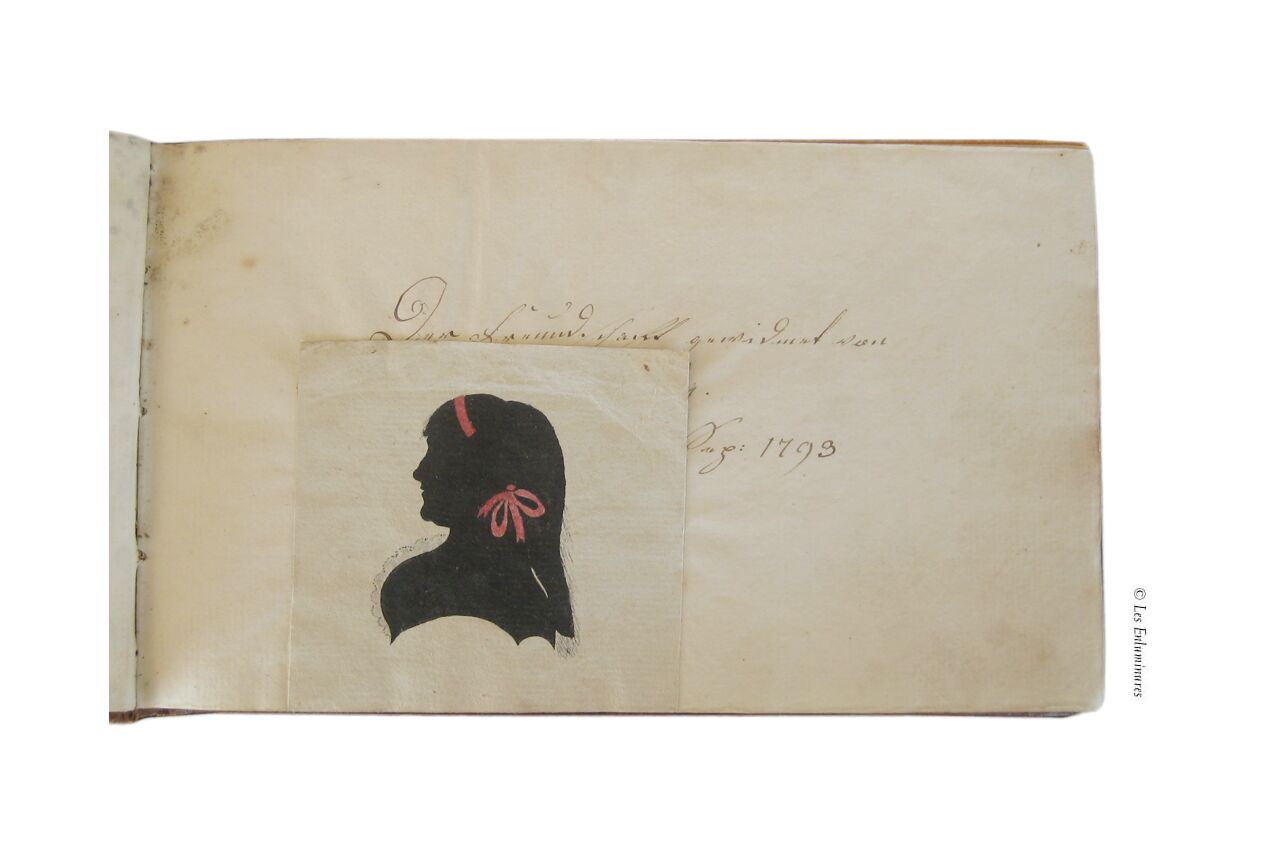 Der Freundschaft gewidmet von
Sep: 1793
© Les Enluminures